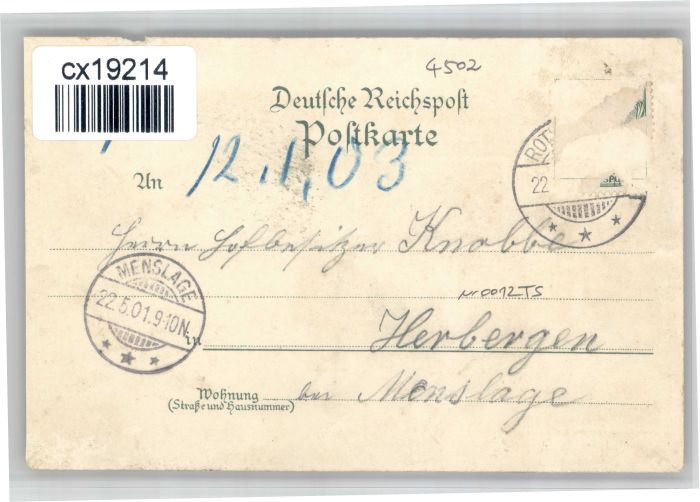 cx19214
4502
Deutsche Reichspost
Postkarte
An 12.1.03
ROT
22
Herrn Hofbesitzer Knobbe
MENSLAGE
22.5.01.9-10N.
Nr0012TS
in Herbergen
Wohnung bei Menslage
(Straße und Hausnummer)